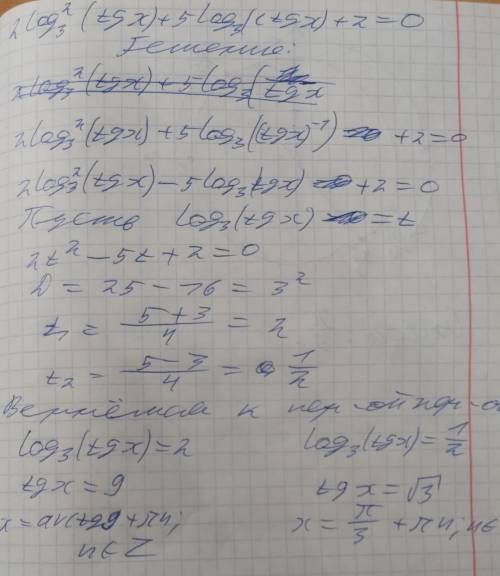 2log₃²(tgx)+5log₃(ctgx)+2=0
Решение:
2log₃²(tgx)+5log₃(tgx
2log₃²(tgx)+5log₃((tgx)⁻¹) +2=0
2log₃²(tgx)-5log₃(tgx) +2=0
Пусть log₃(tgx) =t
2t²-5t+2=0
D=25-16=3²
t₁=(5+3)/4=2
t₂=(5-3)/4=1/2
Вернёмся к
log₃(tgx)=2 log₃(tgx)=1/2
tgx=9 tgx=√3
x=arctg9+πn; x=π/3+πn; n∈
n∈Z